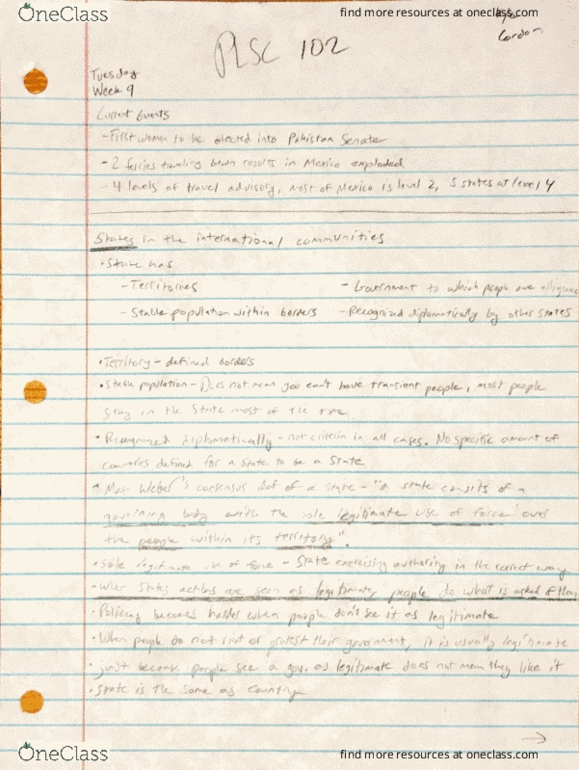 OneClass find more resources at oneclass.com
Gordon
PLSC 102
Tuesday
Week 9
Current Events
- First women to be elected into Pakistan Senate
- 2 ferries traveling btwn resorts in Mexico exploded
- 4 levels of travel advisory, most of Mexico is level 2, 5 states at level 4
States in the international communities
• State has
- Territories - Government to which people owe allegiance
- Stable population within borders - Recognized diplomatically by other states
• Territory - defined borders
• Stable population - Does not mean you can't have transient people, most people
stay in the State most of the time
• Recognized diplomatically - not criteria in all cases. No specific amount of
countries defined for a state to be a state
• Max Weber's consensus def of a state - "a state consists of a
governing body with the sole legitimate use of force over
the people within its territory".
• Sole legitimate use of force - State exercising authority in the correct way
• When States actions are seen as legitimate, people do what is asked of them
• Policing becomes harder when people don't see it as legitimate
• When people do not riot or protest their government, it is usually legitimate
• just because people see a gov. as legitimate does not mean they like it
• State is the same as Country
OneClass find more resources at oneclass.com